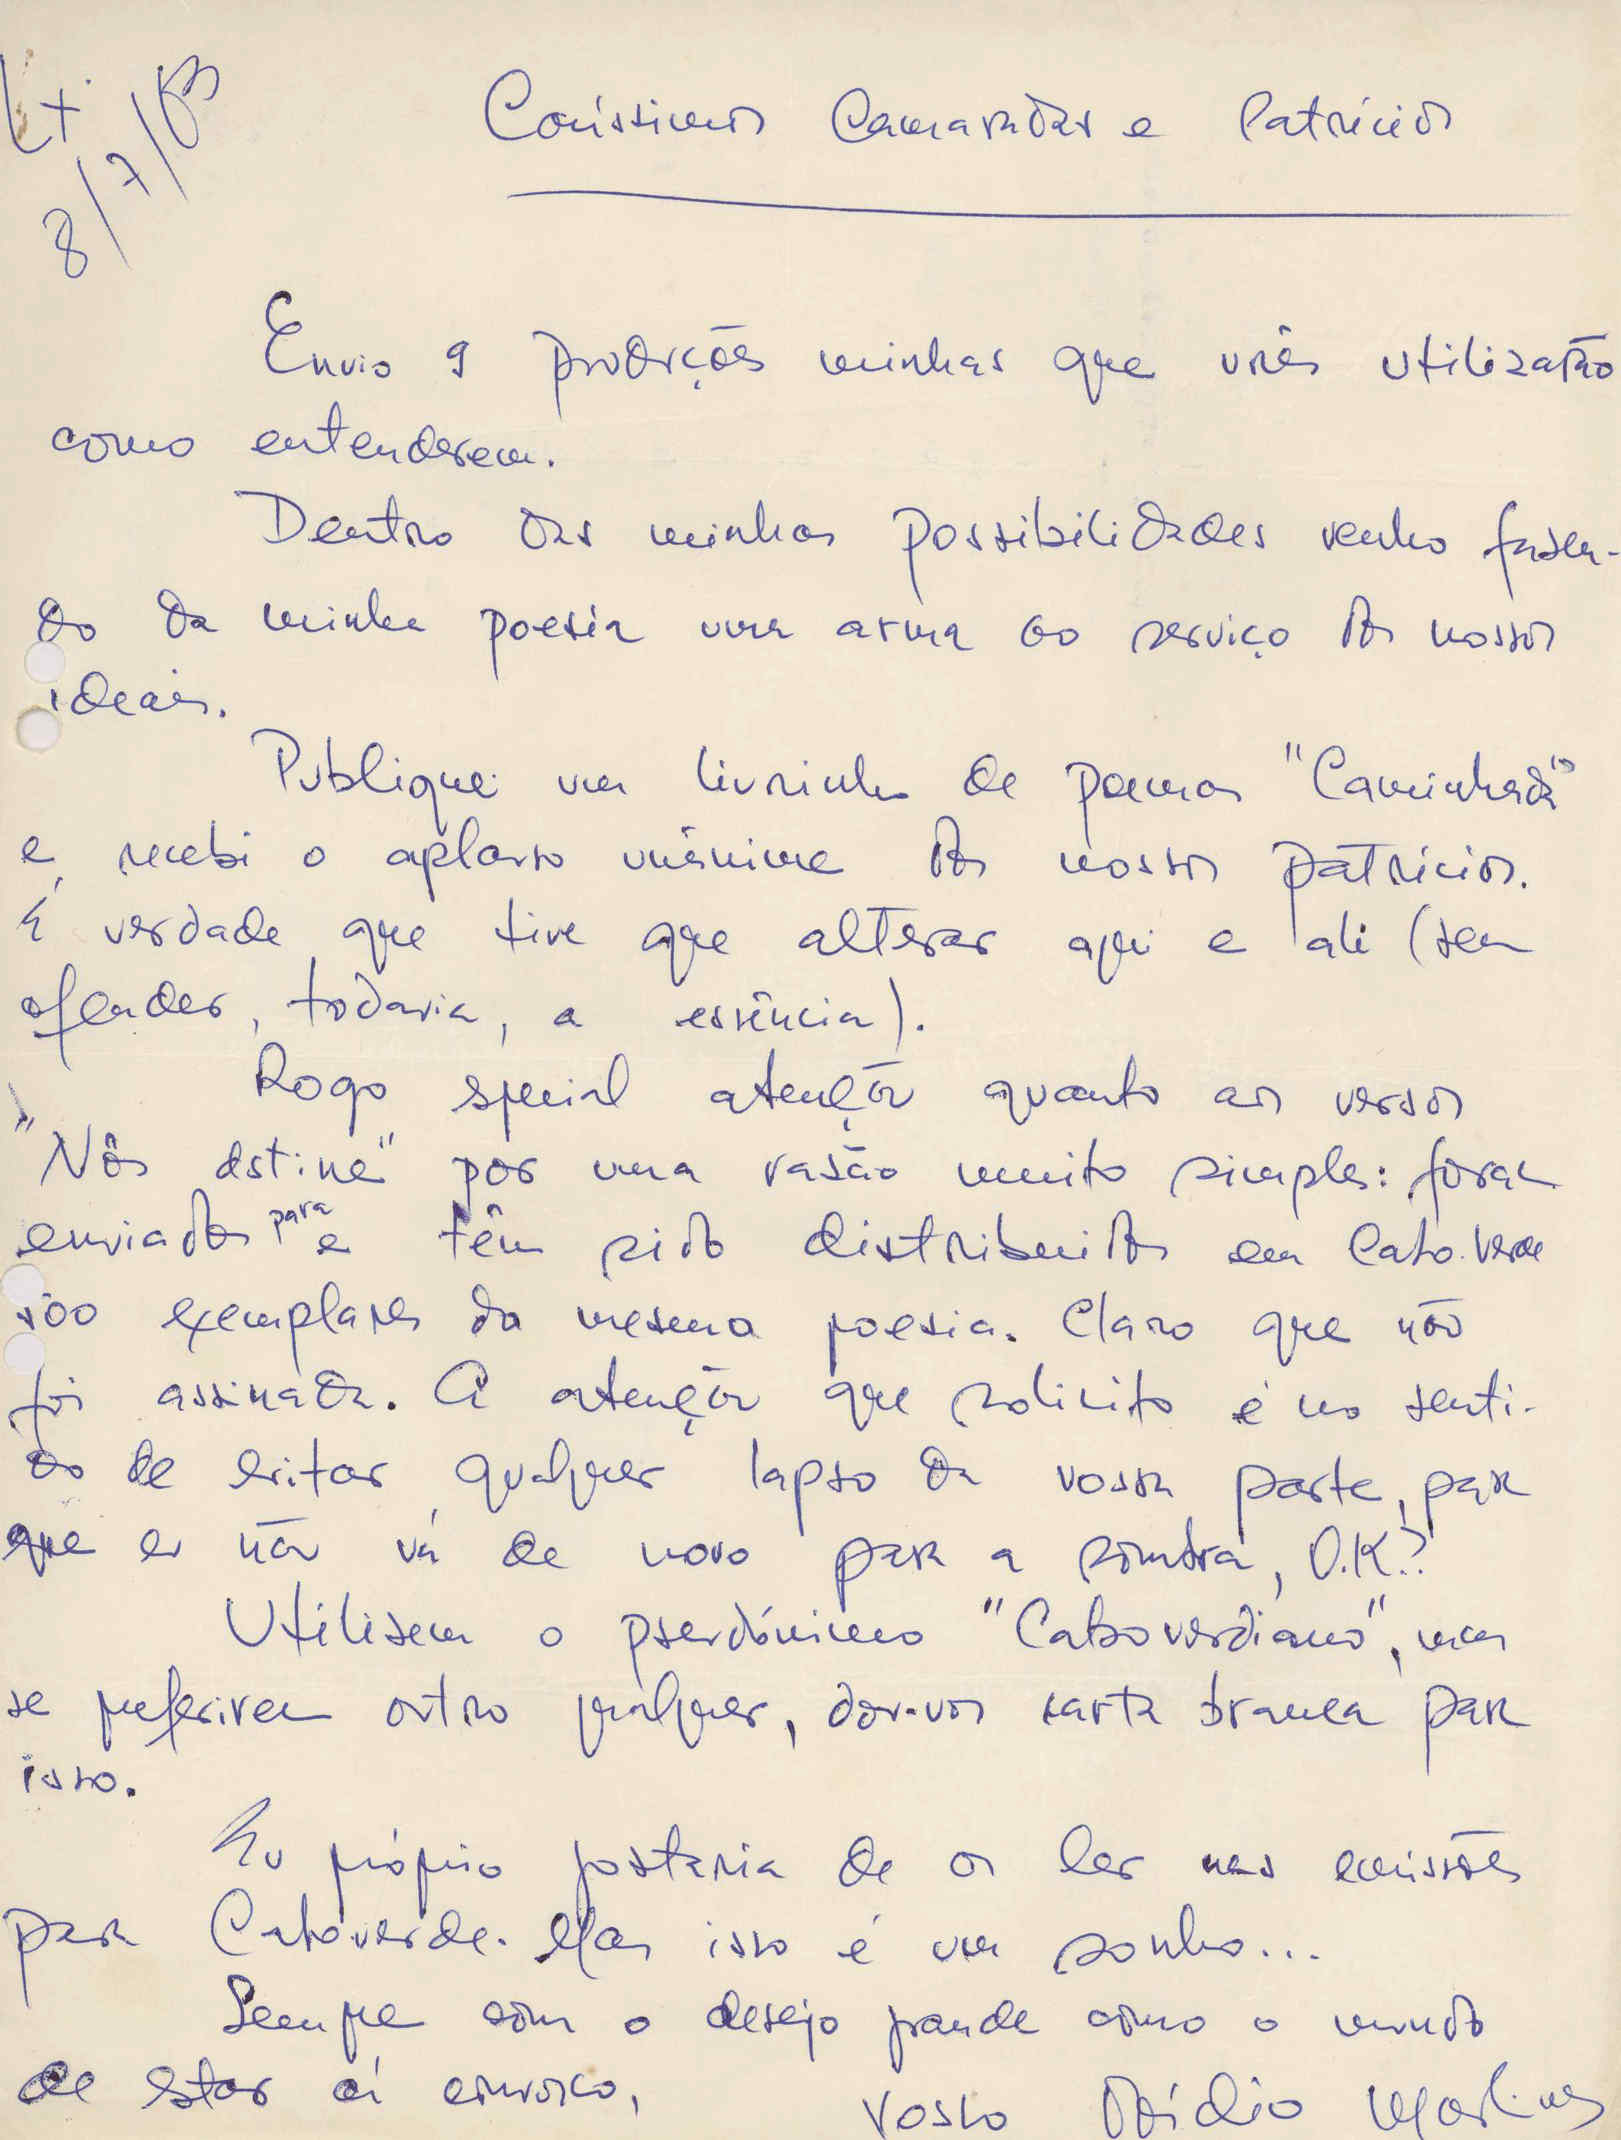 Lx.
8/7/63
Caríssimos Camaradas e Patrícios
Envio 9 produções minhas que vocês utilizarão
como entenderem.
Dentro das minhas possibilidades venho fazen-
do da minha poesia uma arma ao serviço dos nossos
ideais.
Publiquei um livrinho de poemas "Caminhada"
e recebi o aplauso unânime dos nossos patrícios.
É verdade que tive que alterar aqui e ali (sem
ofender, todavia, a essência).
Rogo special atenção quanto aos versos
"Nôs destine" por uma razão muito simples: foram
enviados para e têm sido distribuidos em Cabo-Verde
exemplares da mesma poesia. Claro que não
foi assinada. A atenção que solicito é no senti-
do de evitar qualquer lapso da vossa parte, para
que eu não vá de novo para a sombra, O.K.?
Utilizem o pseudónimo "Caboverdiano", mas
se preferirem outro qualquer, dou-vos carta branca para
isso.
Eu próprio gostaria de os ler nas emissões
para Caboverde. Mas isso é um sonho...
Sempre com o desejo grande como o mundo
de estar aí convosco,
Vosso Ovídio Martins